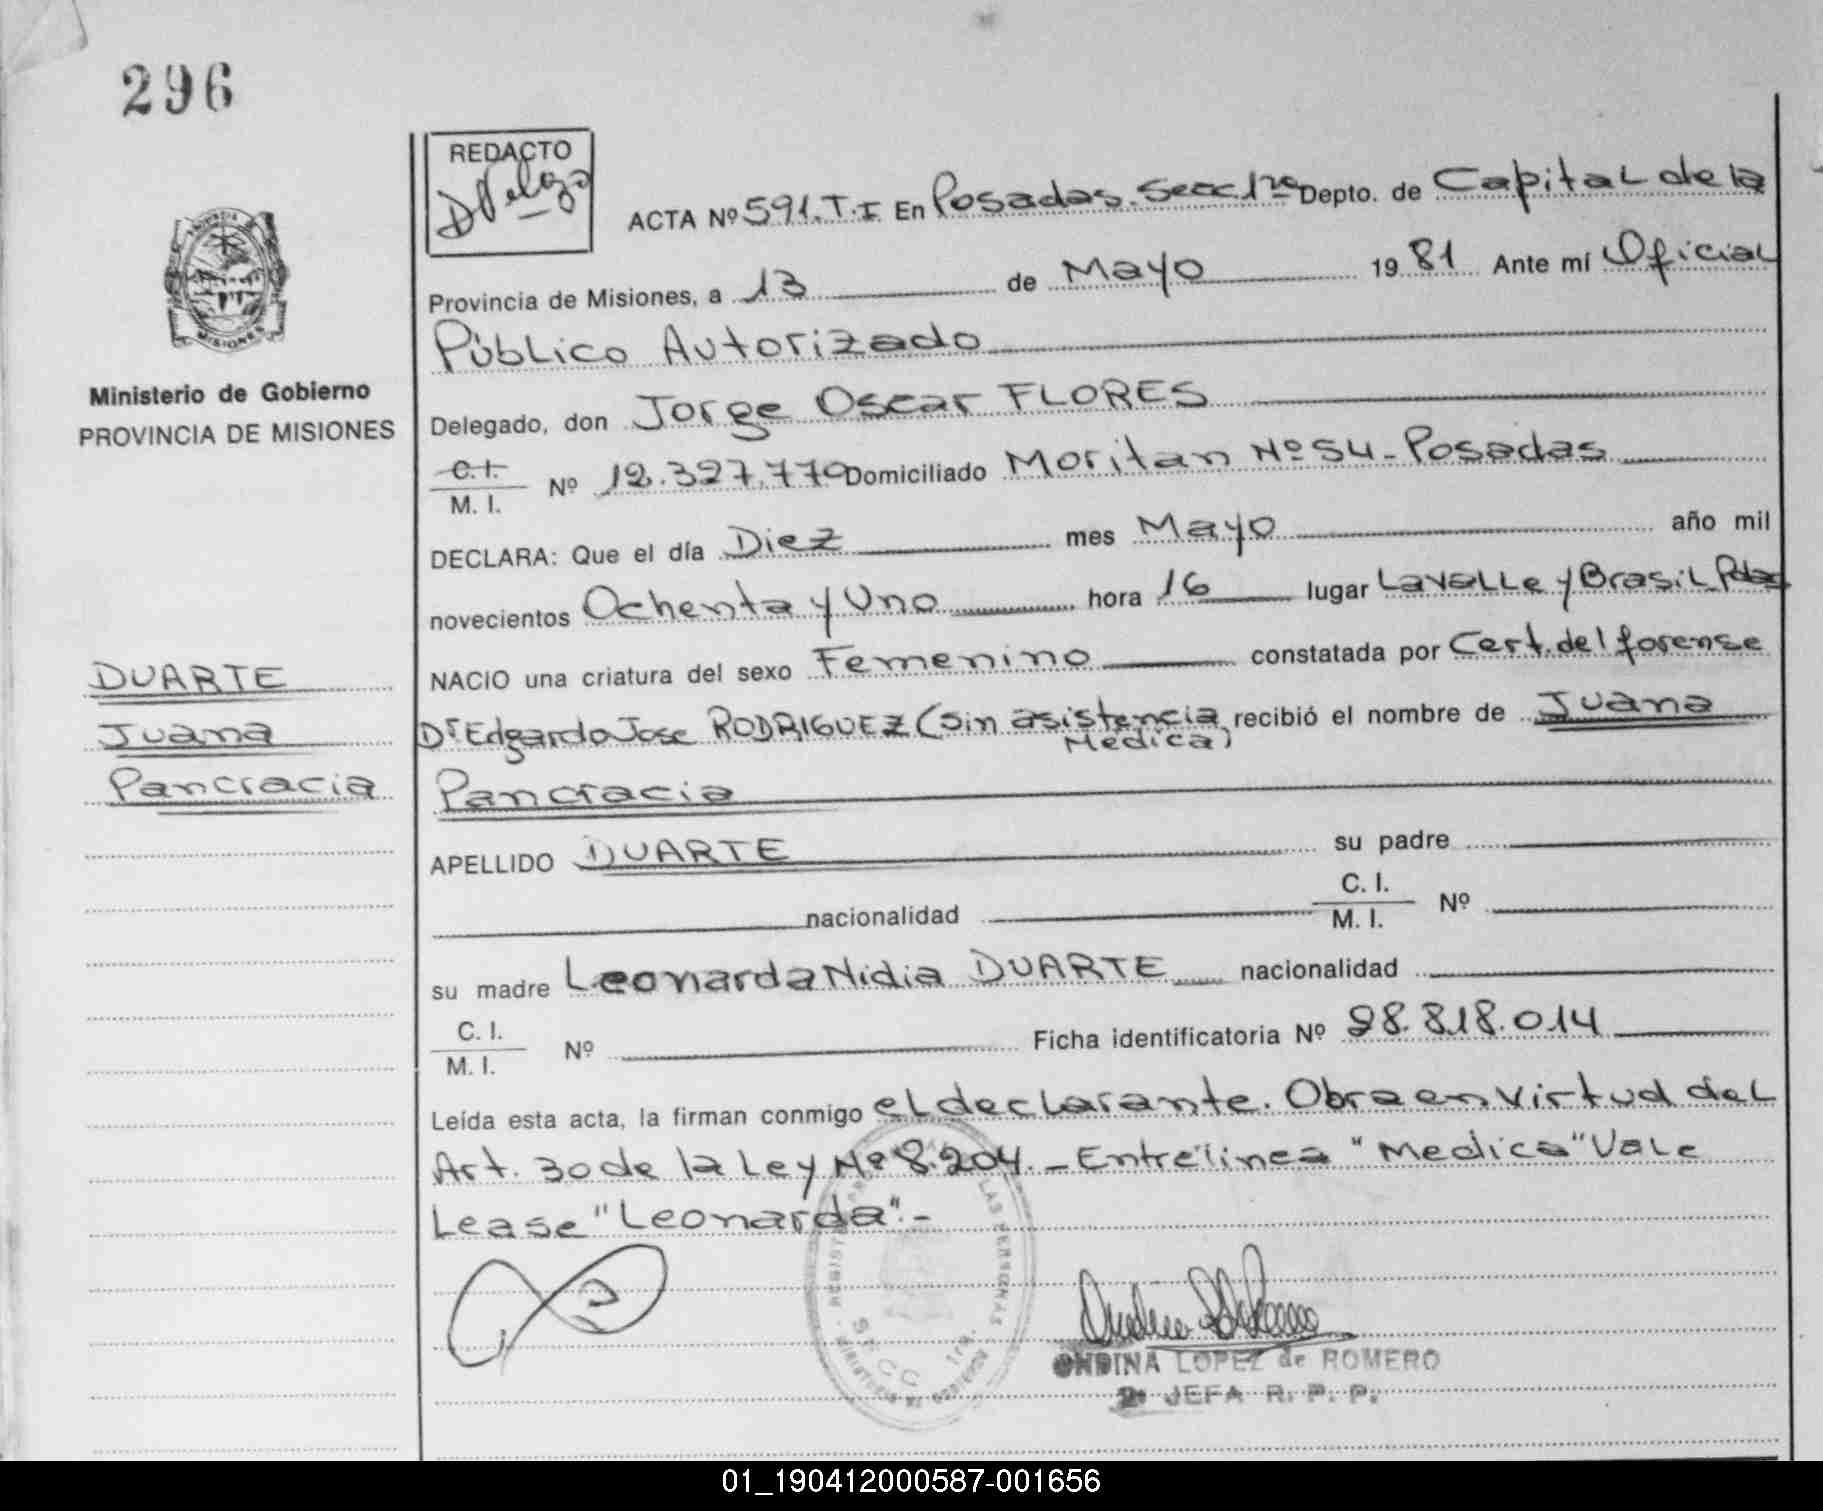 296
REDACTO
ACTA Nº 591. T. I En Posadas. Secc 1ra Depto. de Capital de la
Provincia de Misiones, a 13 de Mayo 19 81 Ante mí Oficial
Público Autorizado
Ministerio de Gobierno
PROVINCIA DE MISIONES
Delegado, don Jorge Oscar FLORES
C. I.
M. I. Nº 12.327.770 Domiciliado Moritan Nº 54 - Posadas
DECLARA: Que el día Diez mes Mayo año mil
novecientos Ochenta y Uno hora 16 lugar Lavalle y Brasil Pdas
DUARTE
Juana
Pancracia
NACIO una criatura del sexo Femenino constatada por Cert. del forense
Dr Edgardo Jose RODRIGUEZ (sin asistencia Medica) recibió el nombre de Juana
Pancracia
APELLIDO DUARTE su padre
nacionalidad C. I.
M. I. Nº
su madre Leonarda Nidia DUARTE nacionalidad
C. I.
M. I. Nº Ficha identificatoria Nº 28.818.014
Leída esta acta, la firman conmigo el declarante. Obra en virtud del
Art. 30 de la Ley Nº 8.204. - Entrelinea "Medica" Vale
Lease "Leonarda". -
ONDINA LOPEZ de ROMERO
2ª JEFA R. P. P.
01_190412000587-001656